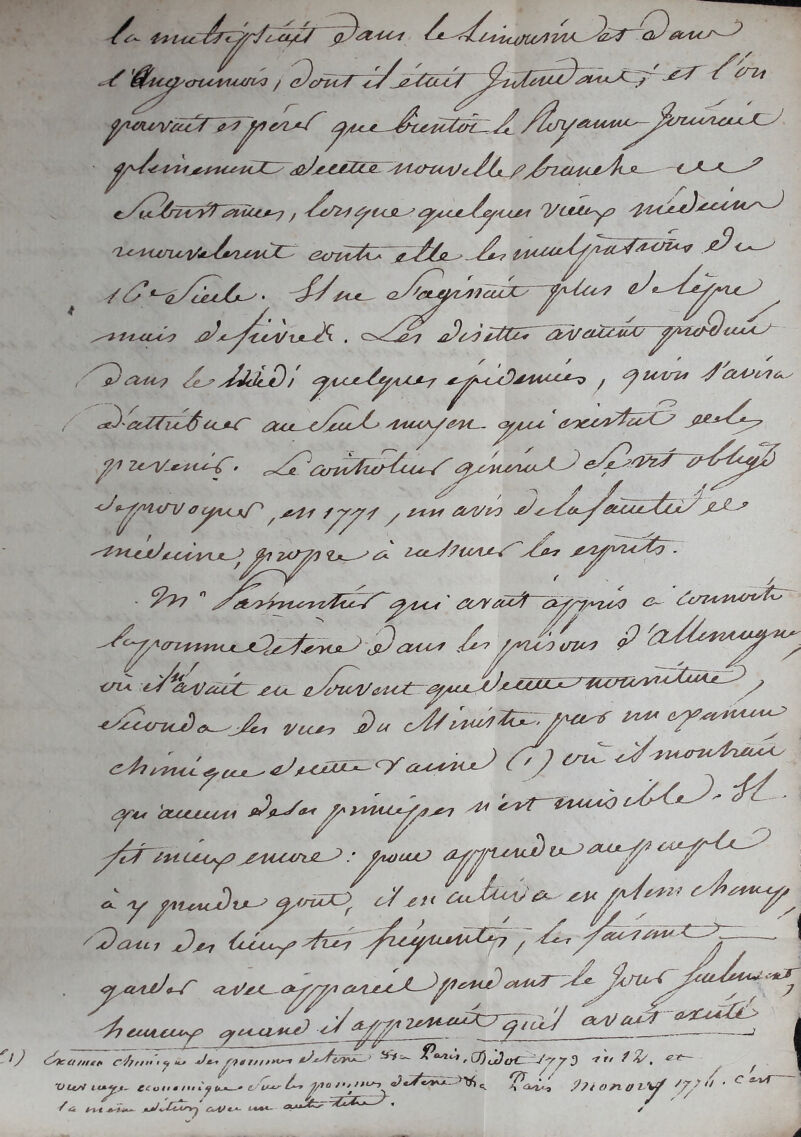 la multipliait dans le Limousin et dans
l'Angoumois, dont il était Intendant; et l'on
pouvait espérer que bientôt le Royaume Jouirait
pleinement de cette nouvelle branche de
Subsistances, lorsque quelques vieux médecins
renouvelerent contre elle les inculpations du
16e Siecle. Il ne S'agissait plus de lèpre
mais de fièvres. Les disettes avaient produit
dans le Midi quelques épidemies, qu'on s'avisa
d'attribuer au Seul moyen qui existat de les
prevenir. Le contrôleur général Se vit obligé
de provoquer, en 1771, un avis de la faculté de
médecine, propre à rassurer les esprits.
Mr Parmentier qui avait appris à connoître
la pomme de terre dans les prisons d'Allemagne,
où il n'avait eu Souvent que de cette nourriture,
Seconda les vues du Ministre par un examen
chimique de cette racine (1) où il montrait
qu'aucun de ses principes n'est nuisible. Il
fit mieux encore: pour apprendre au peuple
à y prendre gout, il en cultiva en plein champ,
dans des lieux très fréquentés, les faisant
garder avec appareil pendant le Jour Seulement,
heureux quand il apprenait qu'il avait excité
(1) Examen chimique des pommes de terre &a Paris, Didot 1773 in 12. et
ouvrage economique Sur les pommes de terre &a Paris Monory 1774. c'est
la même edition avec un autre titre.